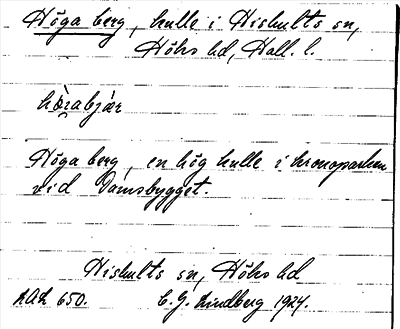 Höga berg, kulle i Hishults sn,
Höks hd, Hall. l.
hö̀gabjär
Höga berg, en hög kulle i kronoparken
vid Dämsbygget.
Hishults sn, Höks hd
LAL 650. C. G. Lindberg 1924.